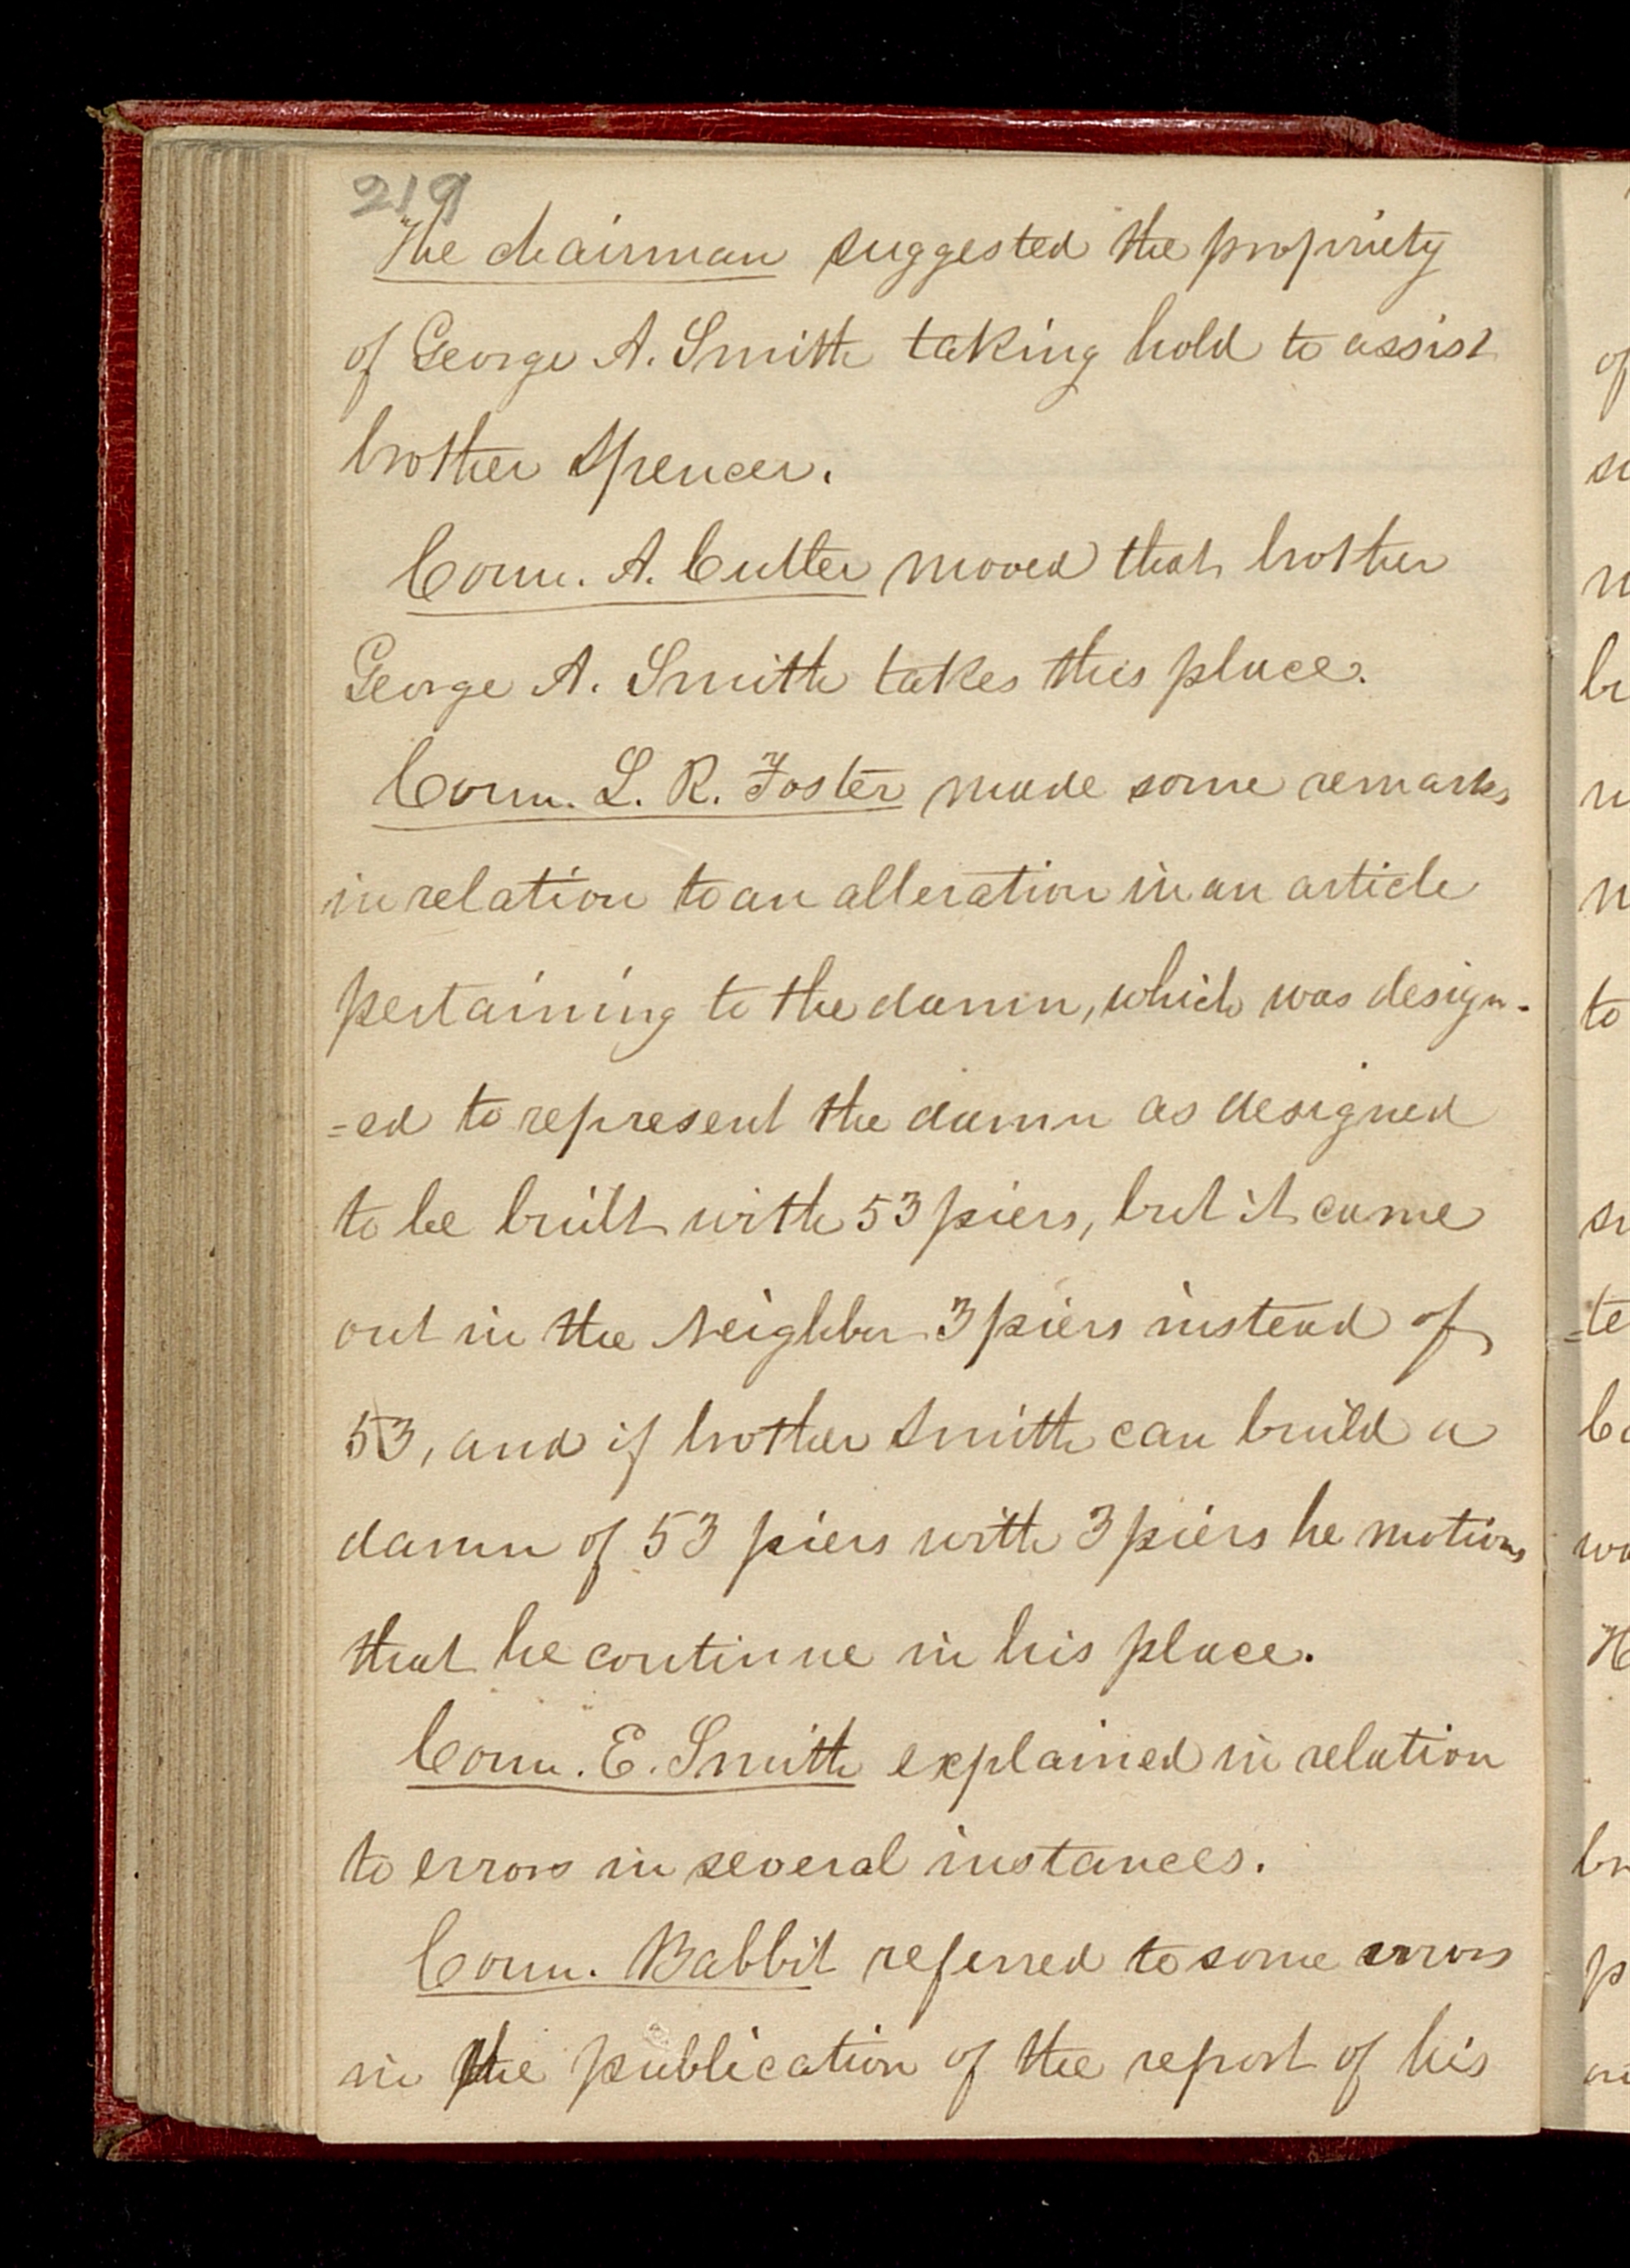 219
The chairman suggested the propriety
of George A. Smith taking hold to assist
brother Spencer.
Coun. A. Cutler moved that brother
George A. Smith takes this place.
Coun. L. R. Foster made some remarks
in relation to an alteration in an article
pertaining to the damn, which was design-
=ed to represent the damn as designed
to be built with 53 piers, but it came
out in the Neighbor 3 piers instead of
53, and if brother Smith can build a
damn of 53 piers with 3 piers he motions
that he continue in his place.
Coun. E. Smith explained in relation
to errors in several instances.
Coun. Babbit referred to some errors
in the publication of the report of his